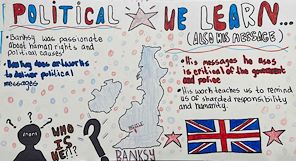 POLITICAL
WE LEARN...
(ALSO HIS MESSAGE)
• Banksy was passionate
about human rights and
political causes
• Banksy does artworks to
deliver political
messages
• His messages he uses
is critical of the government
and police
• His work teaches us to remind
us of shared responsibility
and humanity.
WHO
IS
HE!?
?
BANKSY